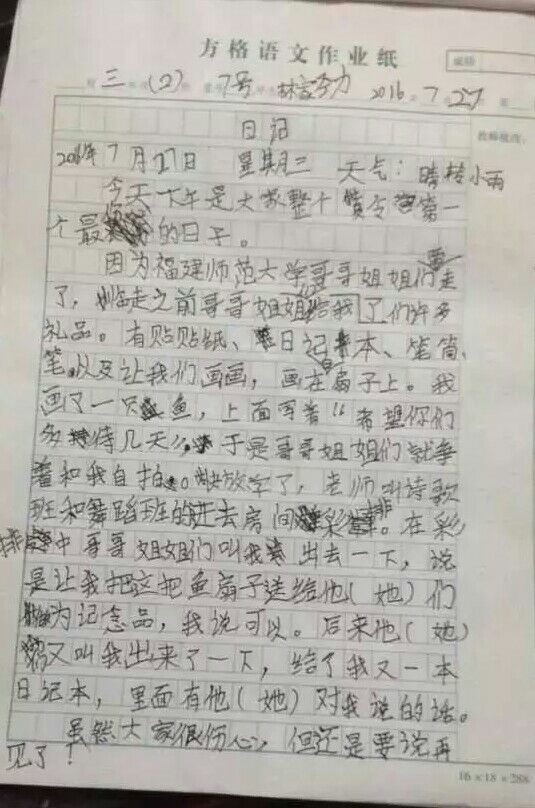 方格语文作业纸
成绩
三 (2) 7号 林 2016 7 27
教师批改:
日记
2016年7月27日 星期三 天气:晴转小雨
今天下午是大家整个夏令营第一
个最 的日子。
因为福建师范大学哥哥姐姐们要走
了,临走之前哥哥姐姐给我了们许多
礼品。有贴贴纸、日记本、笔筒、
笔以及让我们画画,画在扇子上。我
画了一只鱼,上面写着“希望你们
多待几天”。于是哥哥姐姐们就争
着和我自拍。快放学了,老师叫诗歌
班和舞蹈班的进去房间彩排。在彩
排中哥哥姐姐们叫我出去一下,说
是让我把这把鱼扇子送给他(她)们
做为记念品,我说可以。后来他(她)
们又叫我出来了一下,给了我又一本
日记本,里面有他(她)对我说的话。
虽然大家很伤心,但还是要说再
见了!
16×18=288